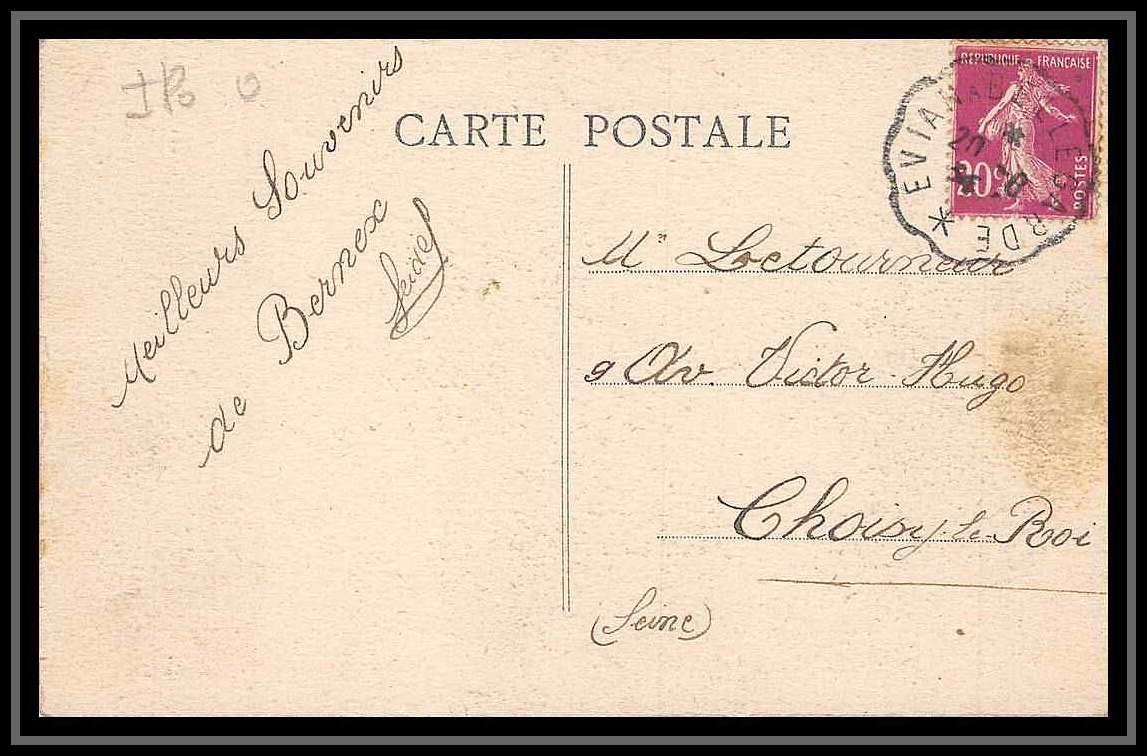 CARTE POSTALE
REPUBLIQUE FRANÇAISE
20c
POSTES
EVIAN A BELLEGARDE
20
28
Meilleurs Souvenirs
de Bernex
Mlle Letournair
9 Av. Victor-Hugo
Choisy-le-Roi
(Seine)